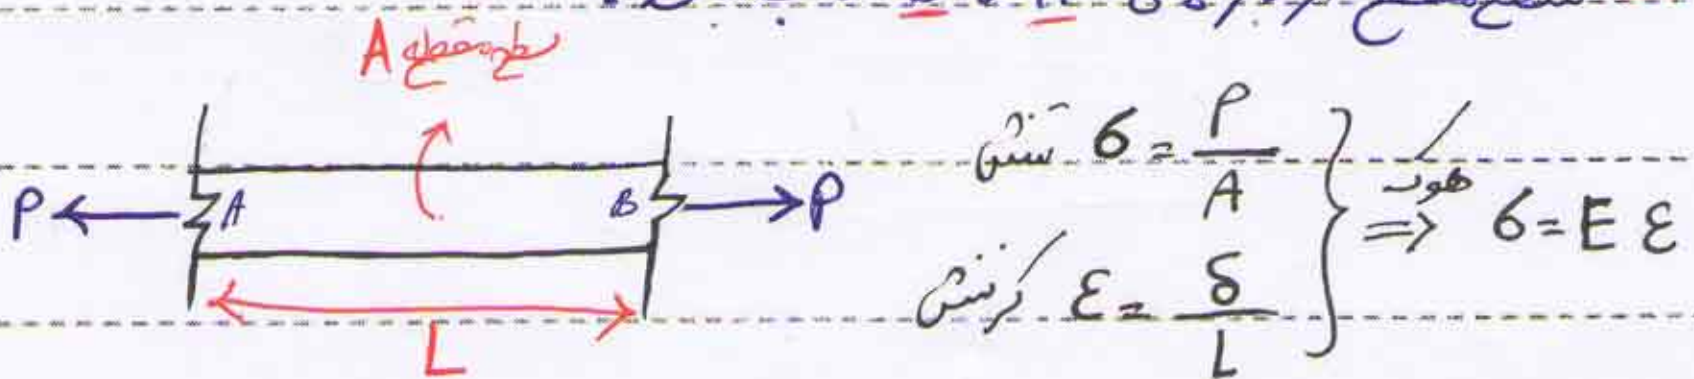 سطح مقطع A
P A B P
L
تنش σ = P / A
کرنش ε = δ / L
هوک ⇒ σ = E ε